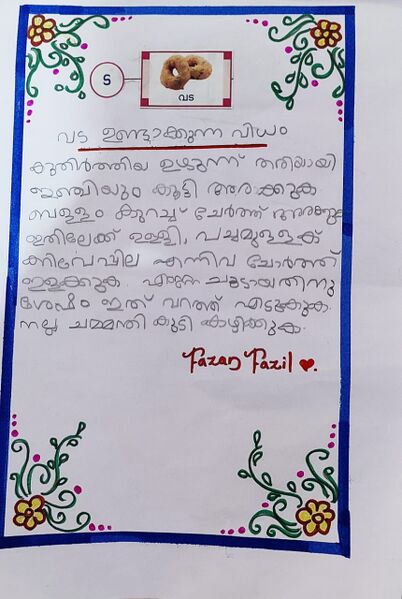 ട
വട
വട ഉണ്ടാക്കുന്ന വിധം
കുതിർത്തിയ ഉഴുന്ന് തരിയായി
ഇഞ്ചിയും കൂട്ടി അരക്കുക
വെള്ളം കുറച്ച് ചേർത്ത് അരക്കുക
ഇതിലേക്ക് ഉള്ളി, പച്ചമുളക്
കറിവേപ്പില എന്നിവ ചേർത്ത്
ഇളക്കുക. എണ്ണ ചൂടായതിനു
ശേഷം ഇത് വറത്ത് എടുക്കുക.
നല്ല ചമ്മന്തി കൂടി കഴിക്കുക.
Fazan Fazil